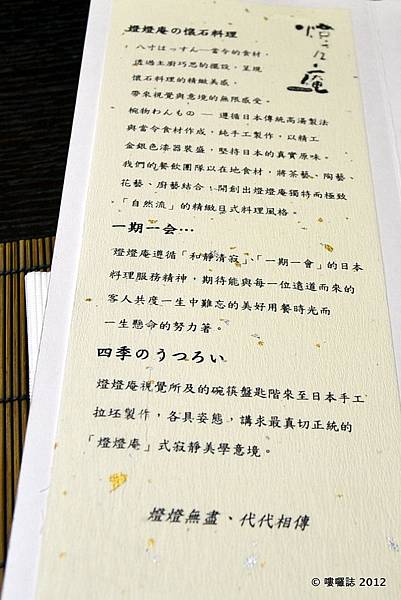 燈燈庵
燈燈庵の懷石料理
八寸はっすん—當令的食材，
透過主廚巧思的擺設，呈現
懷石料理的精緻美感，
帶來視覺與意境的無限感受。
椀物わんもの — 遵循日本傳統高湯製法
與當令食材作成，純手工製作，以精工
金銀色漆器裝盛，堅持日本的真實原味。
我們的餐飲團隊以在地食材，將茶藝、陶藝、
花藝、廚藝結合，開創出燈燈庵獨特而極致
「自然流」的精緻日式料理風格。
一期一会…
燈燈庵遵循「和靜清寂」、「一期一會」的日本
料理服務精神，期待能與每一位遠道而來的
客人共度一生中難忘的美好用餐時光而
一生懸命的努力著。
四季のうつろい
燈燈庵視覺所及的碗筷盤匙階來至日本手工
拉坯製作，各具姿態，講求最真切正統的
「燈燈庵」式寂靜美學意境。
燈燈無盡、代代相傳
© 嘍囉誌 2012